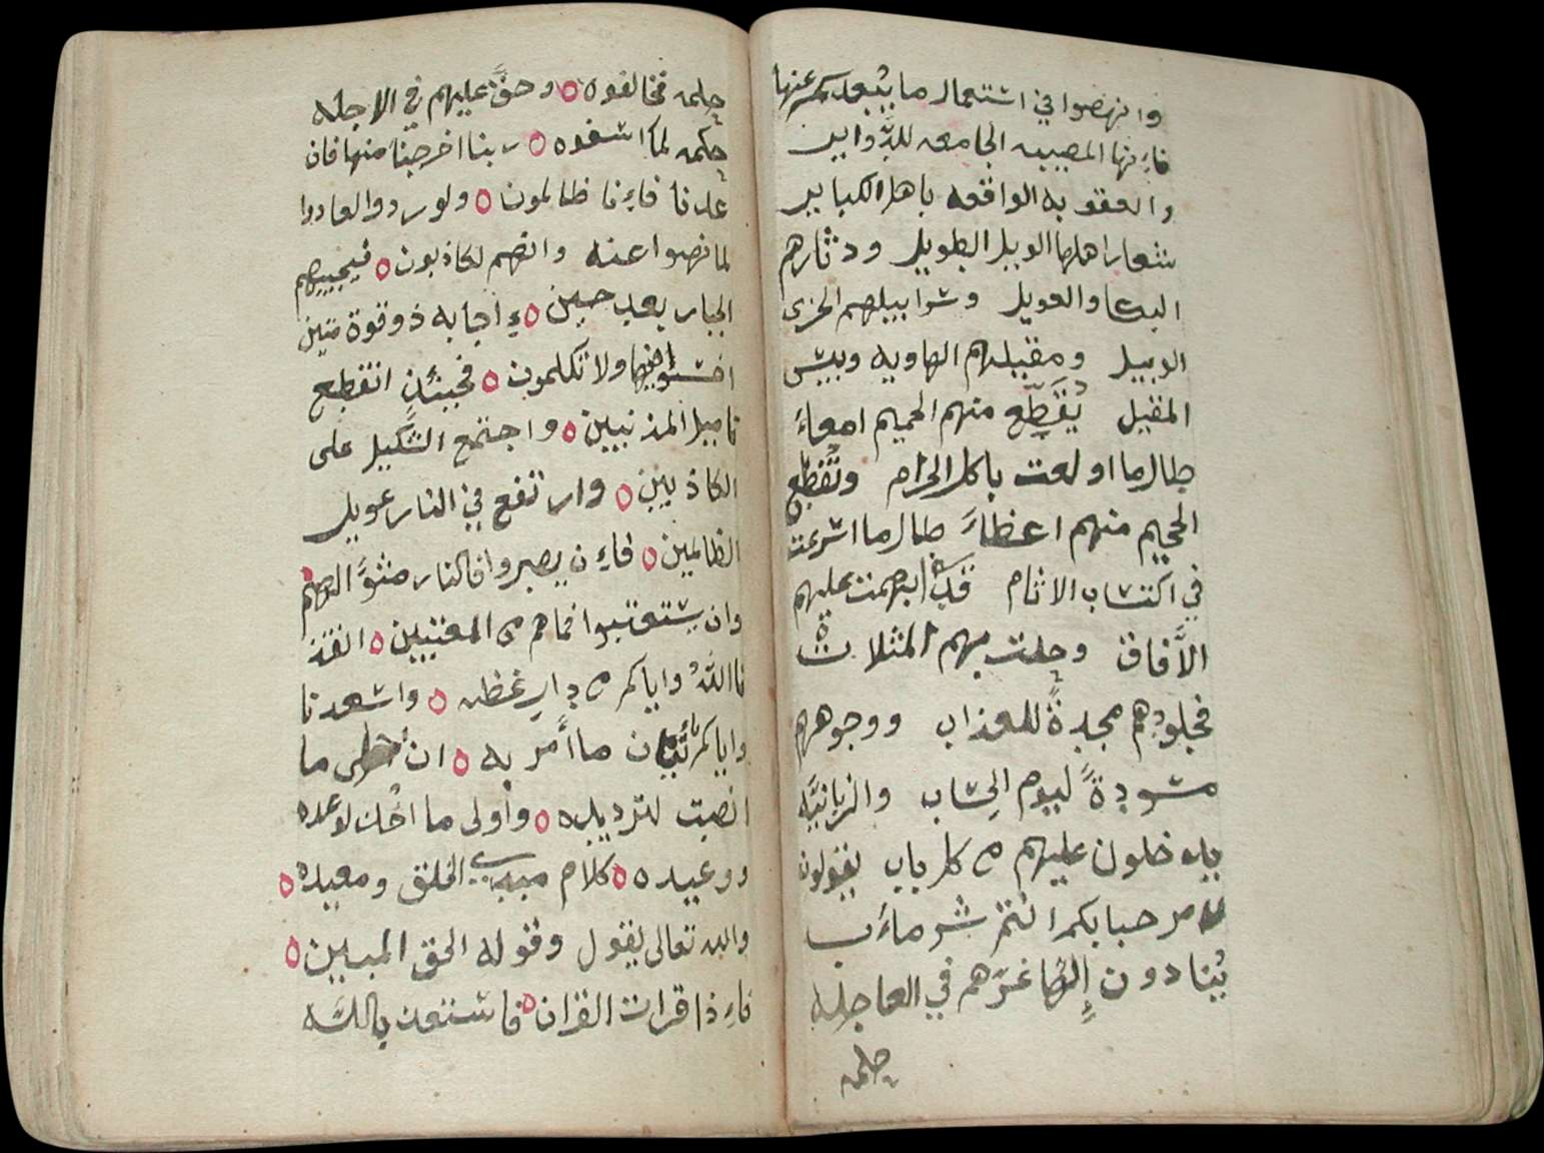 وانهضوا في استعمال ما يُبعدكم عنها
فاءِنها المصيبه الجامعه للدَّوابن
والعقوبه الواقعه باهل الكباير
شعار اهلها الويل الطويل ودثارهم
البكا والعويل وسرابيلهم الخزى
الوبيل ومقيلهم الهاويه وبيس
المقيل يُقَطِّع منهم الحميم امعاءً
طالما اولعت باكل الحرام وتُقطِع
الجحيم منهم اعظاءً طالما اسرعت
في اكتساب الاثام قد ابهمت عليهم
الاَفاق وحلت بهم المثلاتُ
فجلودهم مجددةً للعذاب ووجوههم
مسودةً ليوم الحِساب والزبانيَّه
يدخلون عليهم من كل باب يقولون
لا مرحبا بكم انتم شر ماءَب
يُنادون إِلهًا غرّهم في العاجله
حلمه
حلمه فخالفوه وحقَّ عليهم في الاجله
حكمه لما اسفوه ربنا اخرجنا منها فان
عدنا فاءِنا ظالمون ولو ردوا لعادوا
لما نهوا عنه وانهم لكاذبون فيجيبهم
الجبار بعد حين اجابه ذو قوة متين
اخسوا فيها ولا تكلمون فحينئذٍ انقطع
تاميل المذنبين واجتمع التنكيل على
الكاذبين وارتفع في النار عويل
الظالمين فاءِن يصبروا فالنار مثوًا لهم
وان يستعتبوا فما هم من المعتبين انقذ
نا اللهُ واياكم من دارِ غظبه واسعدنا
واياكم باتيان ما اَمر به ان احلى ما
انصت لترديده واولى ما اخذ لوعده
ووعيده كلام مبدي الخلق ومعيده
والله تعالى يقول وقوله الحق المبين
فاءِذا قرات القران فاستعذ باللَّه